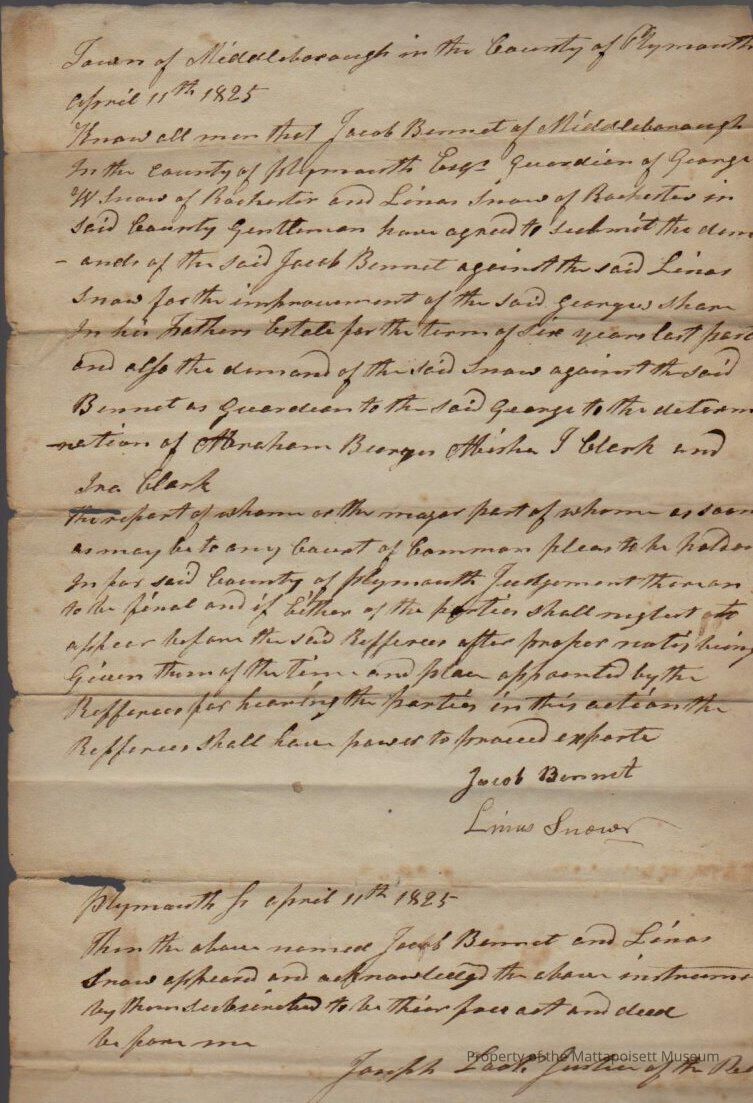 Town of Middleborough in the County of Plymouth
april 11th 1825
Know all men that Jacob Bennet of Middleborough
In the County of plymouth Esqr Guardian of George
W Snow of Rochester and Linas Snow of Rochester in
Said County Gentleman have agreed to submit the dem
-ands of the said Jacob Bennet against the said Linas
Snow for the improvement of the said Georges share
In his Fathers Estate for the term of six years last past
and also the demand of the said Snow against the said
Bennet as Guardian to the said George to the determ
-nation of Abraham Burges Abisha T Clark and
Ira Clark
the report of whome or the major part of whome as soon
as may be to any Court of Common pleas to be holden
In for said County of plymouth Judgement thereon
to be final and if Either of the parties shall neglect to
appear before the said Refferees after proper notis being
Given them of the time and place appointed by the
Refferees for hearing the parties in this action the
Refferees shall have power to proceed exparte
Jacob Bennet
Linus Snow
Plymouth Ss april 11th 1825
Then the above named Jacob Bennet and Linas
Snow appeard and acknowledgd the above instrume
by them subscribed to be thier free act and deed
before me
Joseph Justice of the Pea
Property of the Mattapoisett Museum